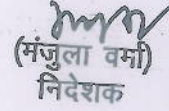 (मंजुला वर्मा)
निदेशक